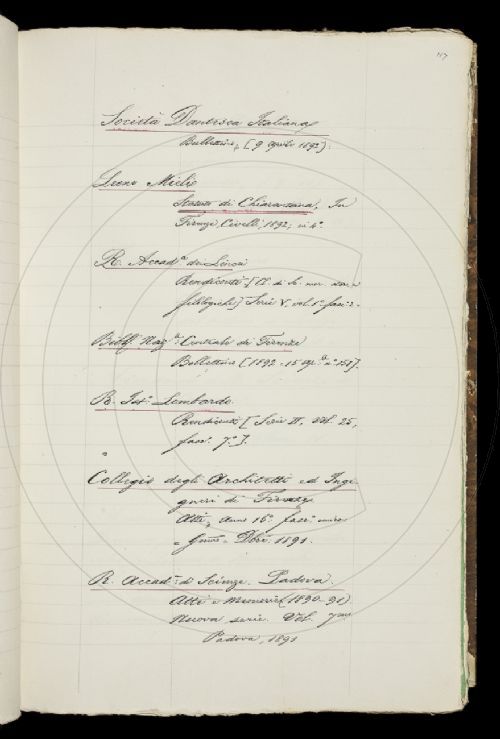 117
Società Dantesca Italiana
Bullettino, [9 aprile 1892].
Leone Melie
Statuto di Chiarentana, In
Firenze, Civelli, 1892, in 4º.
R. Accadª dei Lincei
Rendiconti [Cl. di Sc. mor. stor. e
filologiche] Serie V, vol. 1º fasc. 2.
Bibl. Nazª Centrale di Firenze
Bollettino [1892 - 15 apª. nº 151].
R. Istº Lombardo.
Rendiconti [Serie II, Vol. 25,
fasc. 7º].
Collegio degli Architetti ed Inge
gneri di Firenze
Atti, Anno 16º fasc. unico
Genn. - Dbre. 1891.
R. Accadª di Scienze. Padova.
Atti e Memorie (1890-91)
Nuova serie. Vol. 7mo
Padova, 1891